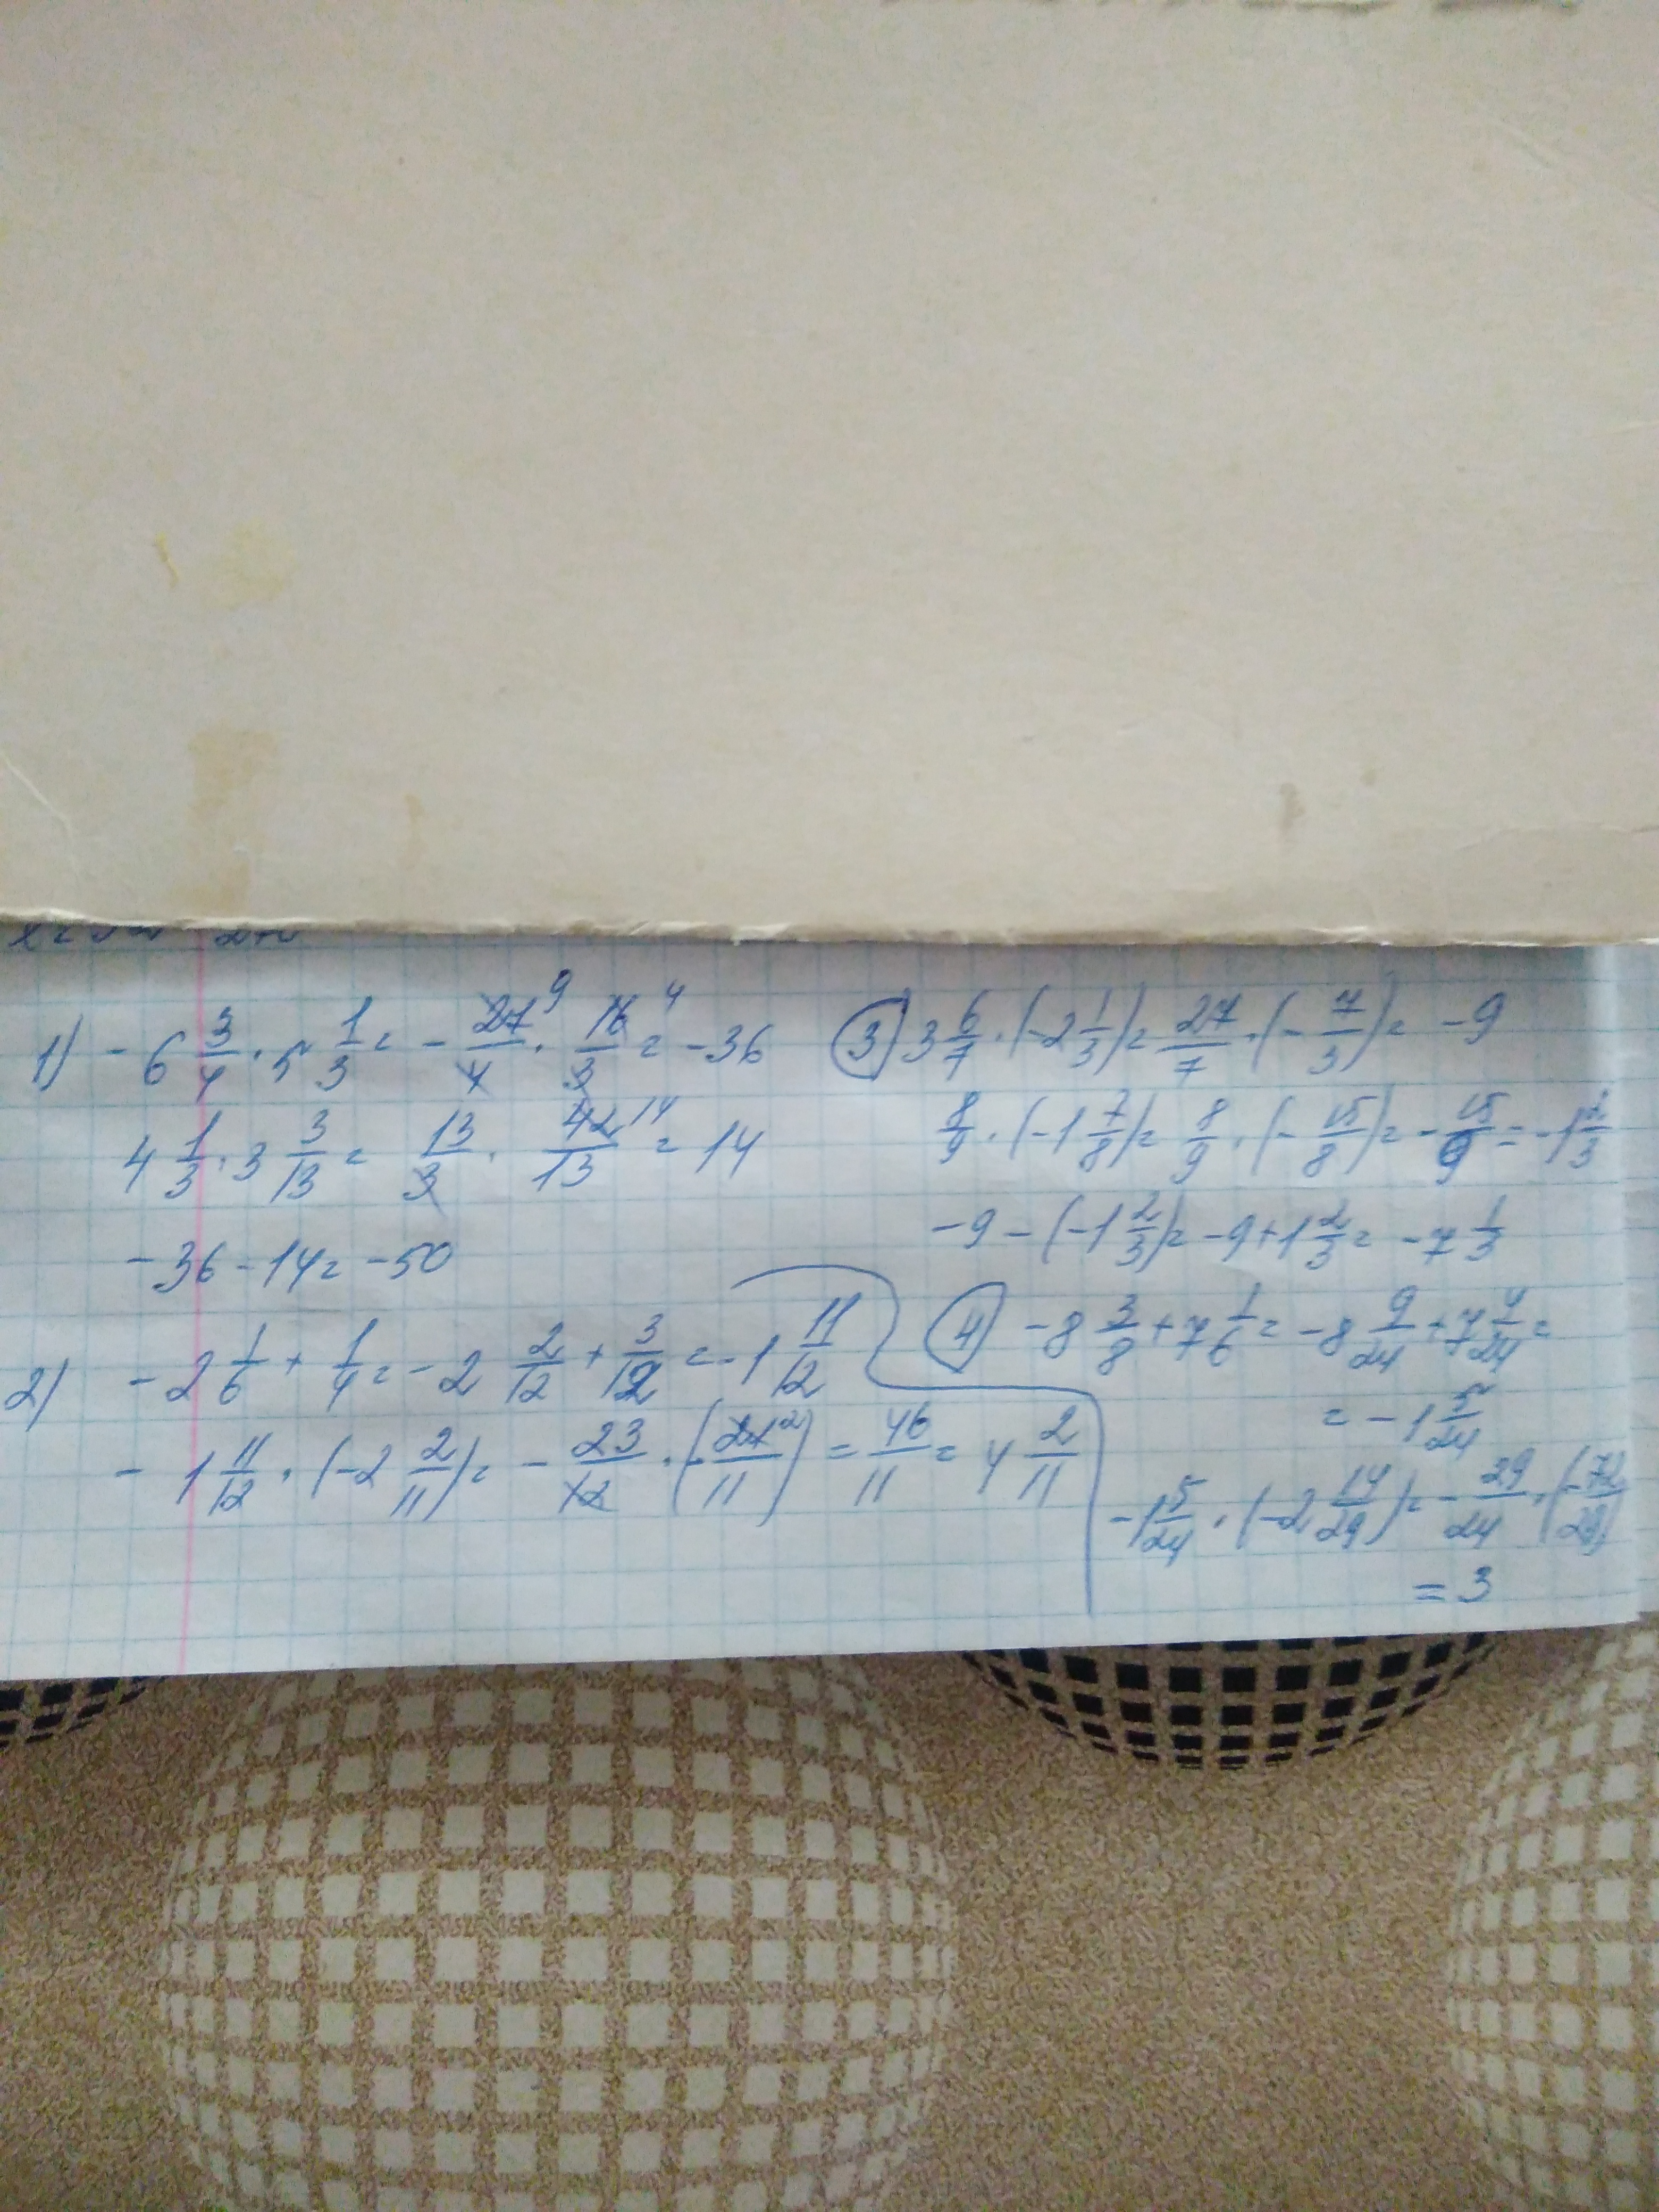 1) - 6 3/4 · 5 1/3 = - 27/4 9 · 16/3 4 = -36
4 1/3 · 3 3/13 = 13/3 · 42/13 14 = 14
- 36 - 14 = - 50
2) - 2 1/6 + 1/4 = - 2 2/12 + 3/12 = - 1 11/12
- 1 11/12 · (-2 2/11) = - 23/12 · (- 24/11 2) = 46/11 = 4 2/11
3) 3 6/7 · (-2 1/3) = 27/7 · (- 7/3) = -9
8/9 · (-1 7/8) = 8/9 · (- 15/8) = - 15/9 = -1 2/3
-9 - (-1 2/3) = -9 + 1 2/3 = -7 1/3
4) -8 3/8 + 7 1/6 = -8 9/24 + 7 4/24 =
= - 1 5/24
-1 5/24 · (-2 14/29) = - 29/24 · (-72/29)
= 3